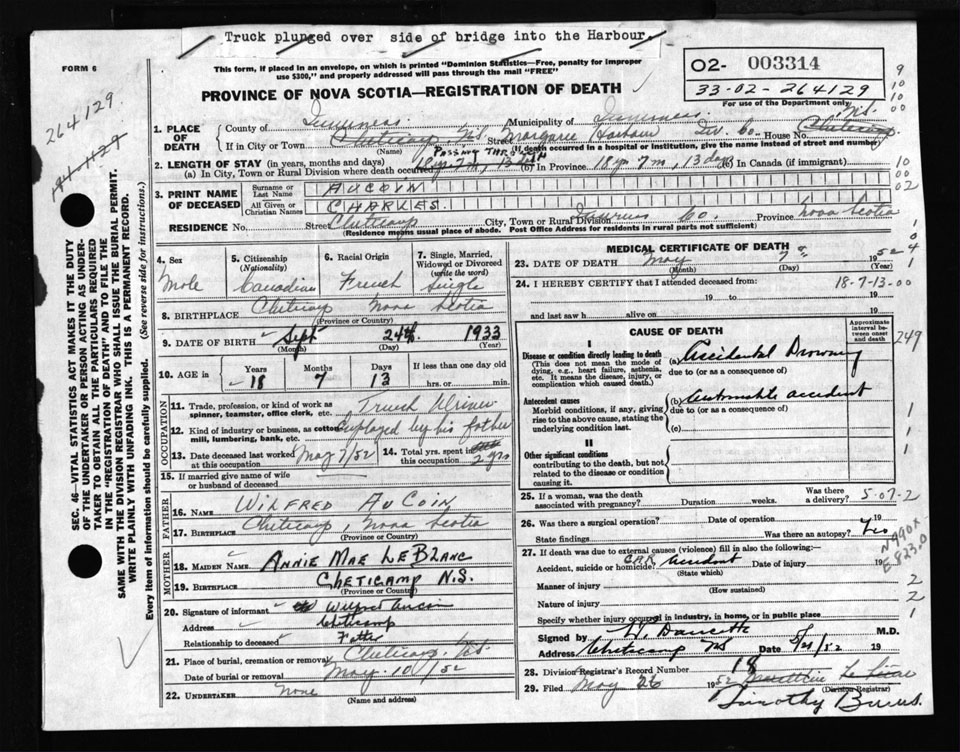 Truck plunged over side of bridge into the Harbour.
FORM 6
This form, if placed in an envelope, on which is printed "Dominion Statistics—Free, penalty for improper
use $300," and properly addressed will pass through the mail "FREE"
PROVINCE OF NOVA SCOTIA—REGISTRATION OF DEATH
02- 003314
33-02-264129
For use of the Department only
264129
1. PLACE OF DEATH
County of Inverness Municipality of Inverness
If in City or Town Cheticamp N.S. Street Margaree Harbour Inv. Co. House No.
(Name) (If death occurred in a hospital or institution, give the name instead of street and number)
2. LENGTH OF STAY (in years, months and days)
(a) In City, Town or Rural Division where death occurred (b) In Province 18 yr 7 m, 13 days (c) In Canada (if immigrant)
PASSING THRU
3. PRINT NAME OF DECEASED
Surname or Last Name AUCOIN
All Given or Christian Names CHARLES.
RESIDENCE No. Street Cheticamp City, Town or Rural Division Inverness Co. Province Nova Scotia
(Residence means usual place of abode. Post Office Address for residents in rural parts not sufficient)
4. Sex Male
5. Citizenship (Nationality) Canadian
6. Racial Origin French
7. Single, Married, Widowed or Divorced (write the word) Single
8. BIRTHPLACE Cheticamp Nova Scotia
(Province or Country)
9. DATE OF BIRTH Sept 24th 1933
(Month) (Day) (Year)
10. AGE in Years 18 Months 7 Days 13 If less than one day old hrs. or min.
OCCUPATION
11. Trade, profession, or kind of work as spinner, teamster, office clerk, etc. Truck Driver
12. Kind of industry or business, as cotton mill, lumbering, bank, etc. Employed by his father
13. Date deceased last worked at this occupation May 7/52
14. Total yrs. spent in this occupation 2 yrs
15. If married give name of wife or husband of deceased
FATHER
16. NAME WILFRED AUCOIN
17. BIRTHPLACE Cheticamp, Nova Scotia
(Province or Country)
MOTHER
18. MAIDEN NAME ANNIE MAE LEBLANC
19. BIRTHPLACE CHETICAMP N.S.
(Province or Country)
20. Signature of informant Wilfred Aucoin
Address Cheticamp
Relationship to deceased Father
21. Place of burial, cremation or removal Cheticamp, N.S.
Date of burial or removal May 10/52
22. UNDERTAKER None
(Name and address)
MEDICAL CERTIFICATE OF DEATH
23. DATE OF DEATH May 7th 1952
(Month) (Day) (Year)
24. I HEREBY CERTIFY that I attended deceased from:
18-7-13-00
19 to 19
and last saw h alive on 19
CAUSE OF DEATH
Approximate interval between onset and death
249
I
Disease or condition directly leading to death
(This does not mean the mode of dying, e.g., heart failure, asthenia, etc. It means the disease, injury, or complication which caused death.)
(a) Accidental Drowning
due to (or as a consequence of)
Antecedent causes
Morbid conditions, if any, giving rise to the above cause, stating the underlying condition last.
(b) Automobile accident
due to (or as a consequence of)
(c)
II
Other significant conditions
contributing to the death, but not related to the disease or condition causing it.
25. If a woman, was the death associated with pregnancy? Duration weeks. Was there a delivery?
5-07-2
26. Was there a surgical operation? Date of operation 19
State findings Was there an autopsy? No
N990X
E823.0
27. If death was due to external causes (violence) fill in also the following:—
Accident, suicide or homicide? CAR Accident Date of injury 19
(State which)
Manner of injury
(How sustained)
Nature of injury
Specify whether injury occurred in industry, in home, or in public place
Signed by M.D.
Address Cheticamp NS Date 5/21/52
28. Division Registrar's Record Number 18
29. Filed May 26 1952
(Division Registrar)
Timothy
SEC. 46—VITAL STATISTICS ACT MAKES IT THE DUTY
OF THE UNDERTAKER OR PERSON ACTING AS UNDER-
TAKER TO OBTAIN ALL THE PARTICULARS REQUIRED
IN THE "REGISTRATION OF DEATH" AND TO FILE THE
SAME WITH THE DIVISION REGISTRAR WHO SHALL ISSUE THE BURIAL PERMIT.
WRITE PLAINLY WITH UNFADING INK. THIS IS A PERMANENT RECORD.
Every item of information should be carefully supplied. (See reverse side for instructions.)